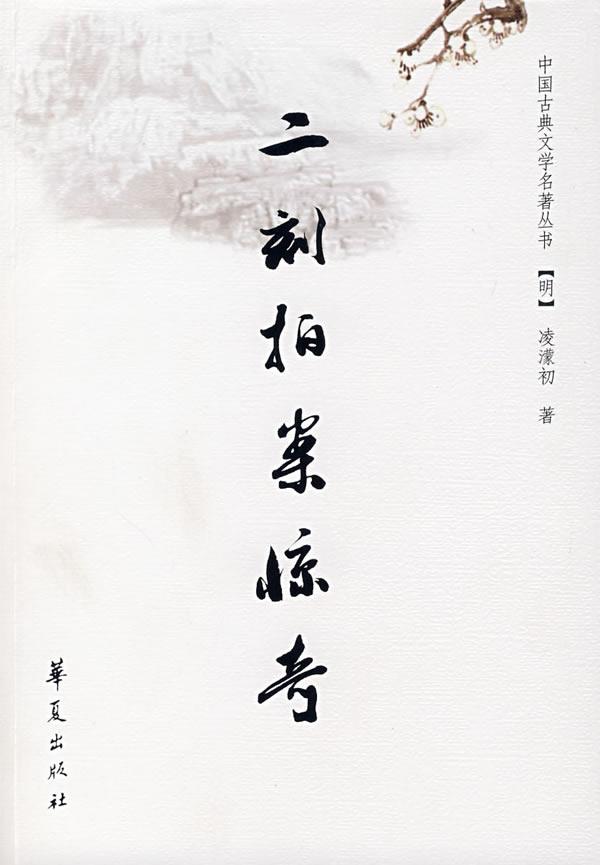 中国古典文学名著丛书【明】 凌濛初 著
二刻拍案惊奇
華夏出版社